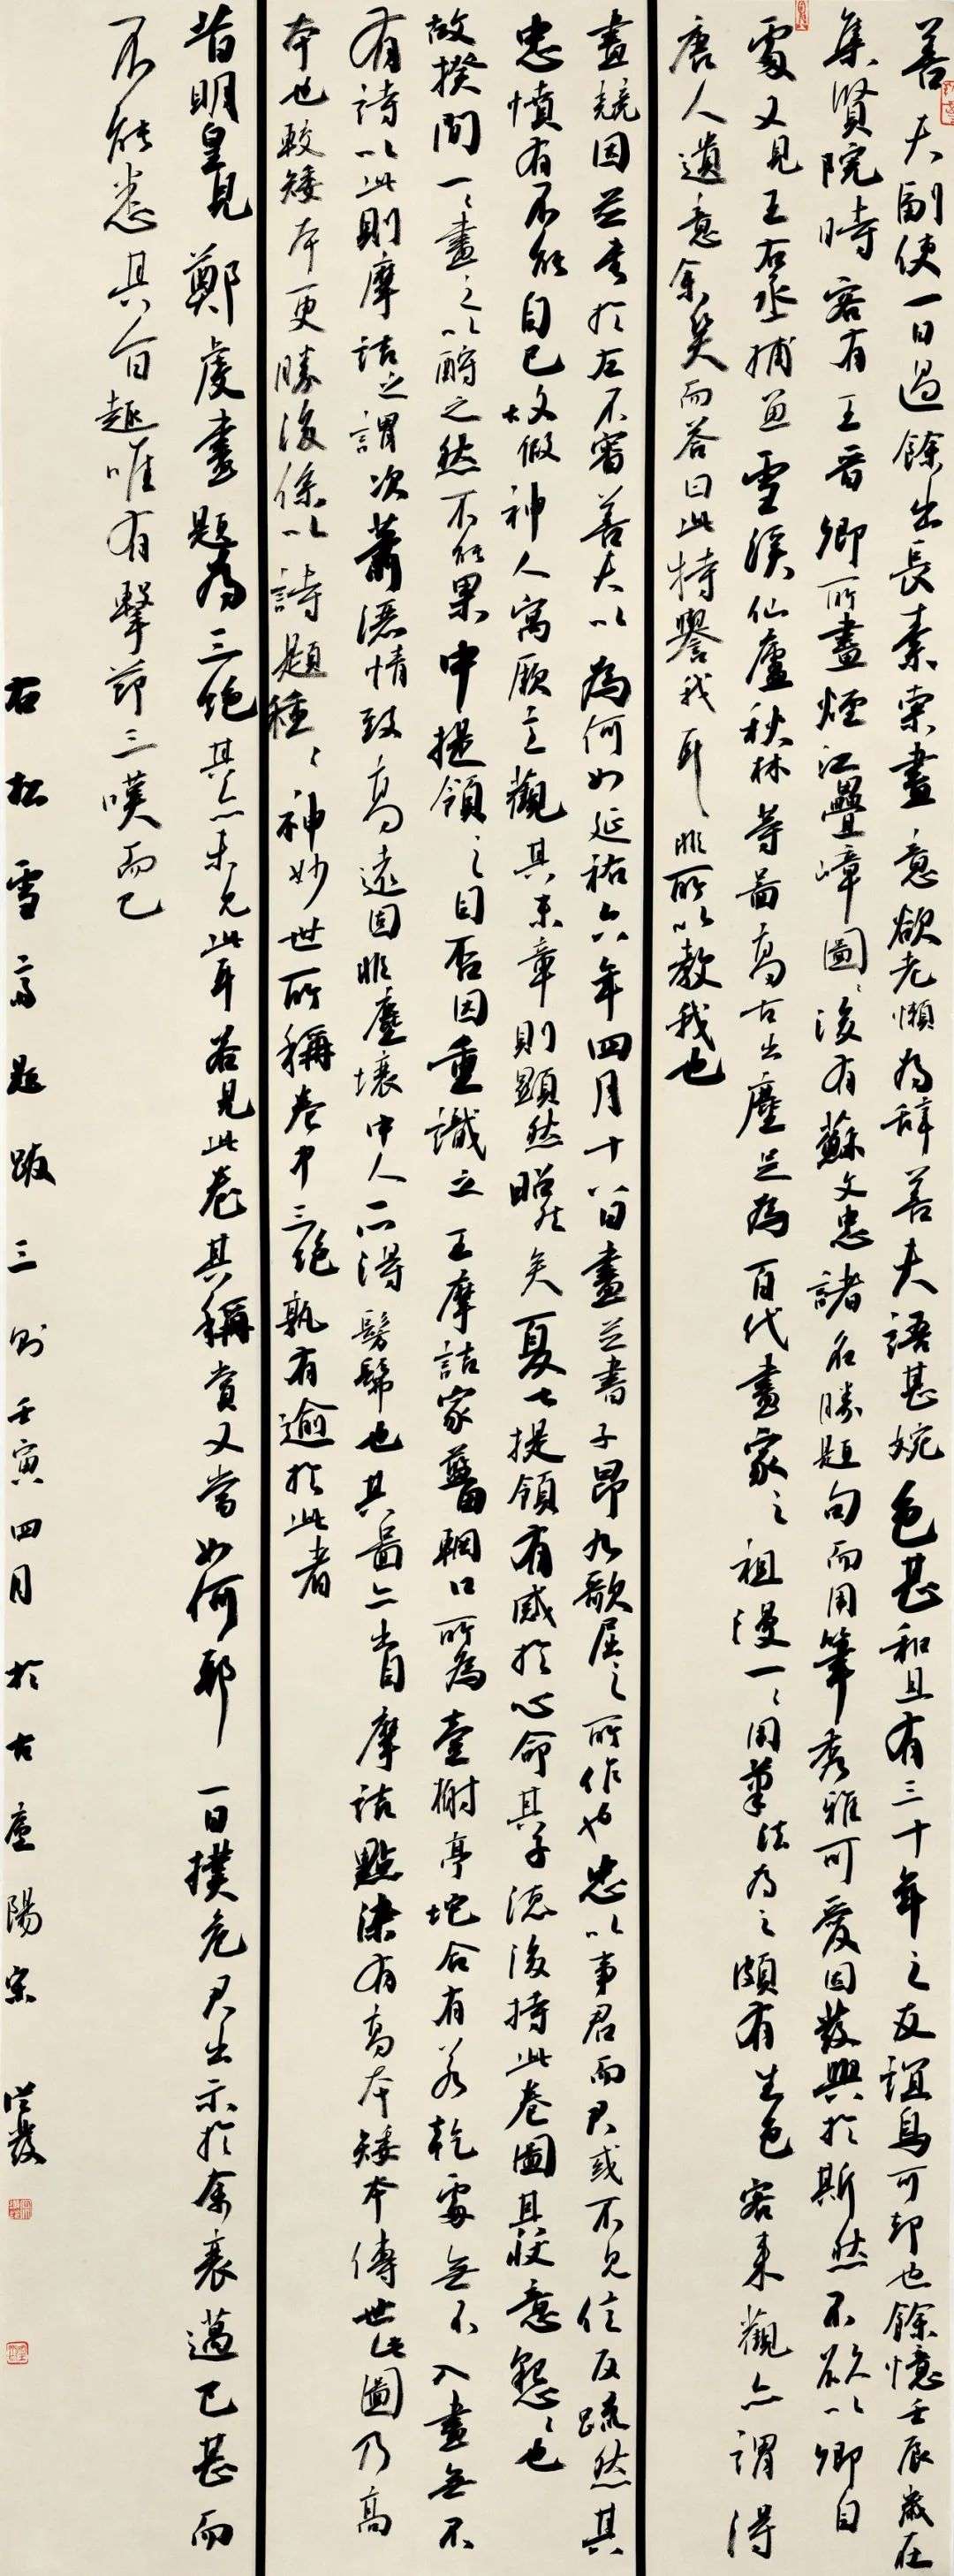 善夫副使一日過餘出長素索畫意欲老懶為辭善夫語甚婉色甚和且有三十年之友誼烏可却也餘憶壬辰歲在
集賢院時客有王晉卿所畫煙江疊嶂圖圖後有蘇文忠諸名勝題句而用筆秀雅可愛因發興於斯然不欲以卿自
處又見王右丞捕魚雪溪仙廬秋林等圖高古出塵足為百代畫家之祖漫一一用筆法為之頗有生色客來觀亦謂得
唐人遺意余笑而答曰此特譽我耳非所以教我也
畫競因並書於左不審善夫以為何如延祐六年四月十八日畫並書子昂九歌屈之所作也忠以事君而君或不見信反疏然其
忠憤有不能自已故假神人寓厥意觀其末章則顯然昭然矣夏士提領有感於心命其子德後持此卷圖且校意懇懇也
故揆閒一一畫之以酹之然不能果中提領之目否因重識之王摩詰家藍田輞口所為臺榭亭垞合有若乾處無不入畫無不
有詩以此則摩詰之謂次蕭灑情致高遠固非塵壤中人所得髣髴也其圖亦當自摩詰點染有高本矮本傳世此圖乃高
本也較矮本更勝後係以詩題種種神妙世所稱卷中三絕孰有逾於此者
昔明皇見鄭虔畫題為三絕其亦未見此耳若見此卷其稱賞又當如何耶 一日撲危君出示於余衰邁已甚而
不能悉具合趣唯有擊節三嘆而已
右松雪齋題跋三則壬寅四月於古廬陽宋